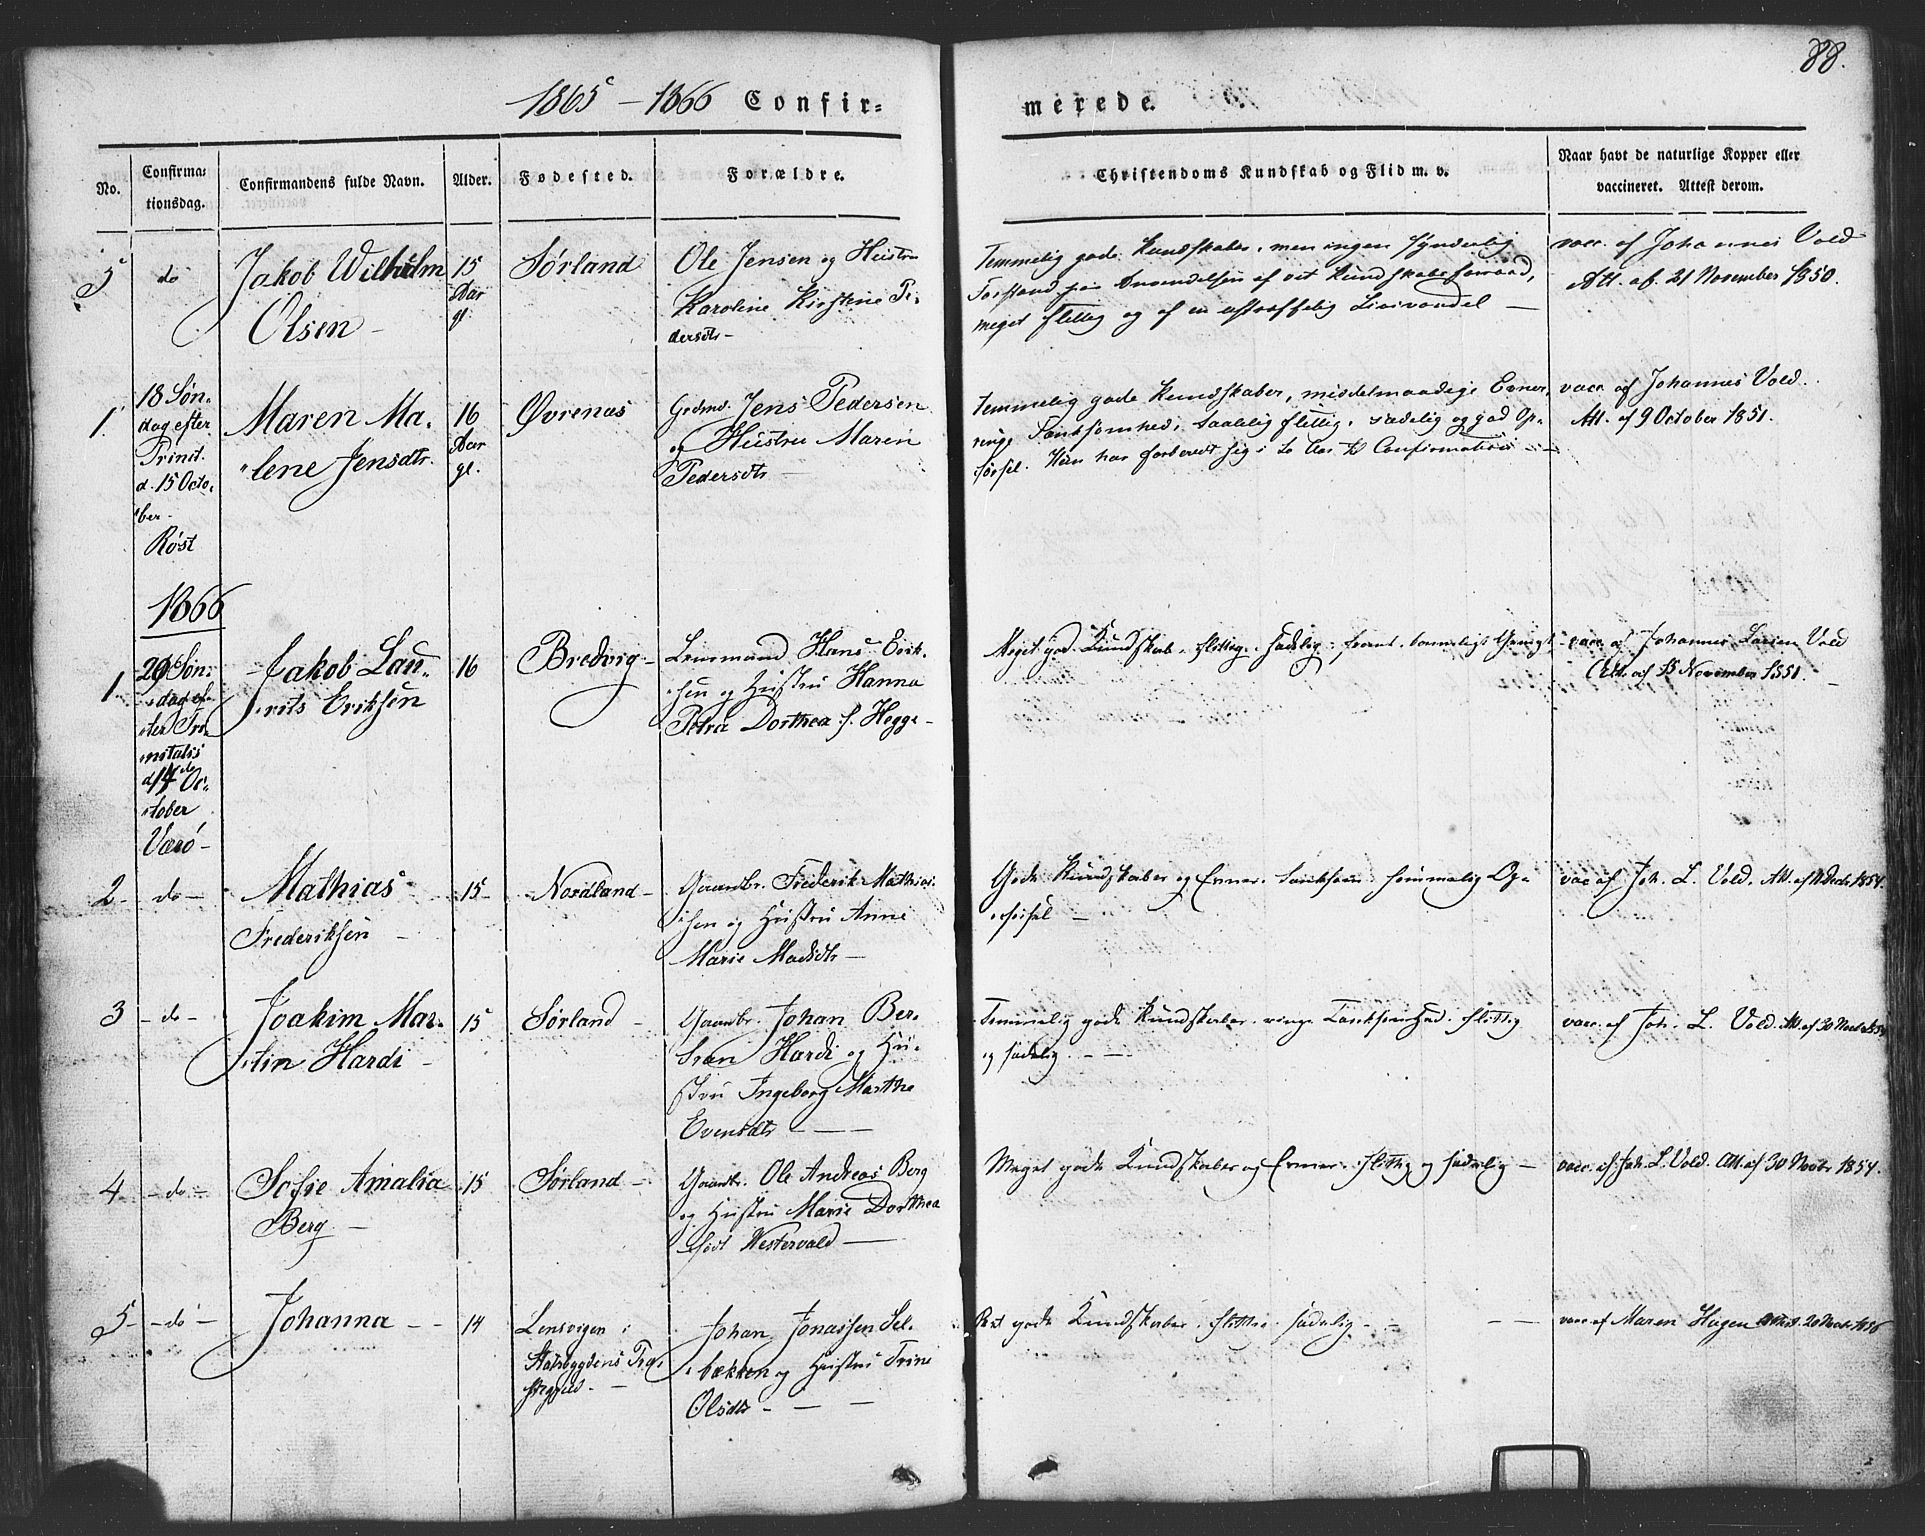 88.
1865 - 1866 Confir=
merede.
No.
Confirma=
tionsdag.
Confirmandens fulde Navn.
Alder.
Fødested.
Forældre.
Christendoms Kundskab og Flid m. v.
Naar havt de naturlige Kopper eller
vaccineret. Attest derom.
5
do
Jakob Wilhelm
Olsen -
15
Aar
gl.
Sørland
Ole Jensen og Hustru
Karoline Kirstine Pe-
dersdtr -
Temmelig gode Kundskaber, men ingen synderlig
Forstand paa Anvendelsen af sit Kundskabsforraad,
meget flittig og af en ustraffelig Livsvandel -
vacc. af Johannes Vold
Att. af 21 November 1850.
1.
18 Søn-
dag efter
Trinit.
d. 15 Octo-
ber -
Røst
Maren Ma-
lene Jensdtr.
16
Aar
gl.
Øvrenæs
Grdmd. Jens Pedersen
og Hustru Maren
Pedersdtr -
Temmelig gode Kundskaber, middelmaadige Evner,
ringe Tænksomhed, flittig, sædelig og god Op-
førsel. Hun har forberedt sig i to Aar til Confirmation -
vacc. af Johannes Vold.
Att. af 9 October 1851.
1866
1.
20 Søn-
dag ef-
ter Tri-
nitatis
d 14de Oc-
tober
Værø -
Jakob Lau-
rits Eriksen
16
Bredvig -
Lensmand Hans Erik-
sen og Hustru Hanna
Petra Dorthea f. Hegge -
Meget god Kundskab, flittig, sædelig
vacc. af Johannes Larsen Vold
Att. af November 1851.
2 -
- do -
Mathias
Frederiksen -
15 -
Nordland -
Gaardbr. Frederik Mathias-
sen og Hustru Anne
Marie Madsdtr -
Gode Kundskaber og Evner, tænksom, sømmelig Op-
førsel -
vac af Joh. L. Vold. Att. af Decbr 1854.
3
- do -
Joakim Mar-
tin Hardi -
15
Sørland -
Gaardbr. Johan Ber-
Hardi og Hu-
stru Ingeborg Marthe
Evensdtr -
Temmelig gode Kundskaber, ringe Tænksomhed, flittig
og sædelig. -
vacc. af Joh. L. Vold. Att. af 20 Novbr
4
- do -
Sofie Amalia
Berg -
15
Sørland -
Gaardbr. Ole Andreas Berg
og Hustru Marie Dorthea
født Westervald -
Meget gode Kundskaber og Evner, flittig og sædelig -
vacc. af Joh. L. Vold. Att. af 30 Novbr 1854.
5 -
- do -
Johanna - -
14
Lensvigen i
Stadsbygdens Præ-
stegjeld. -
Johan Jonassen Sel-
bækken og Hustru Trine
Olsdtr - - -
Ret gode Kundskaber, flittig, sædelig - -
vacc af Maren Hagen Attest 20